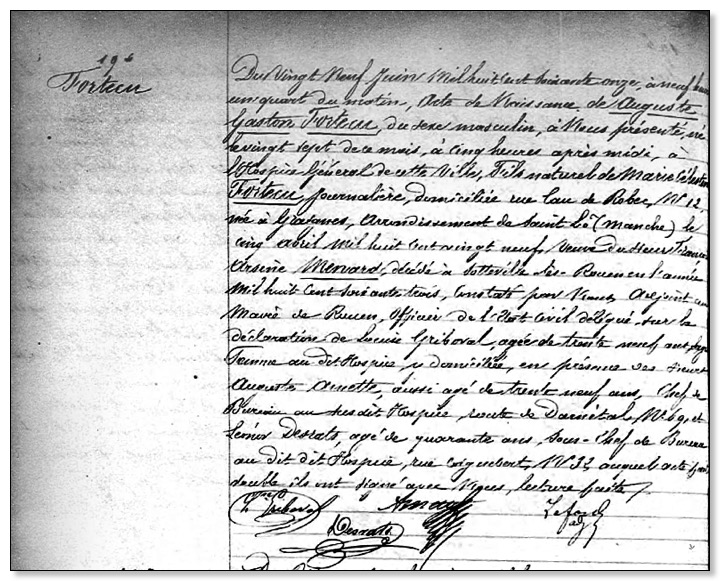 19
Fortecu
Du Vingt Neuf Juin Mil huit cent soixante onze, à neuf heures
un quart du matin, Acte de Naissance de Auguste
Gaston Fortecu, du sexe masculin, à Nous présenté, né
le vingt sept de ce mois, à cinq heures après midi, à
l'Hospice Général de cette Ville, Fils naturel de Marie
Fortecu, Journalière, domiciliée rue Eau de Robec, N° 12
née à Graignes, Arrondissement de Saint Lô (Manche) le
cinq avril mil huit cent vingt neuf, Veuve du sieur
Arsène Menvard, décédé à Sotteville lès-Rouen en l'année
mil huit cent soixante trois, constaté par Nous Adjoint au
Maire de Rouen, Officier de l'état civil délégué, sur la
déclaration de Lucie Griboval, agée de trente neuf ans, sage
Femme au dit Hospice, y domiciliée, en présence des sieurs
Auguste Amette, aussi agé de trente neuf ans, Chef de
Bureau au susdit Hospice, route de Darnétal, N° 69, et
Desrats, agé de quarante ans, Sous-Chef de Bureau
au dit dit Hospice, rue N° 33, auquel acte
double ils ont signé avec Nous, lecture faite
Griboval
Desrats